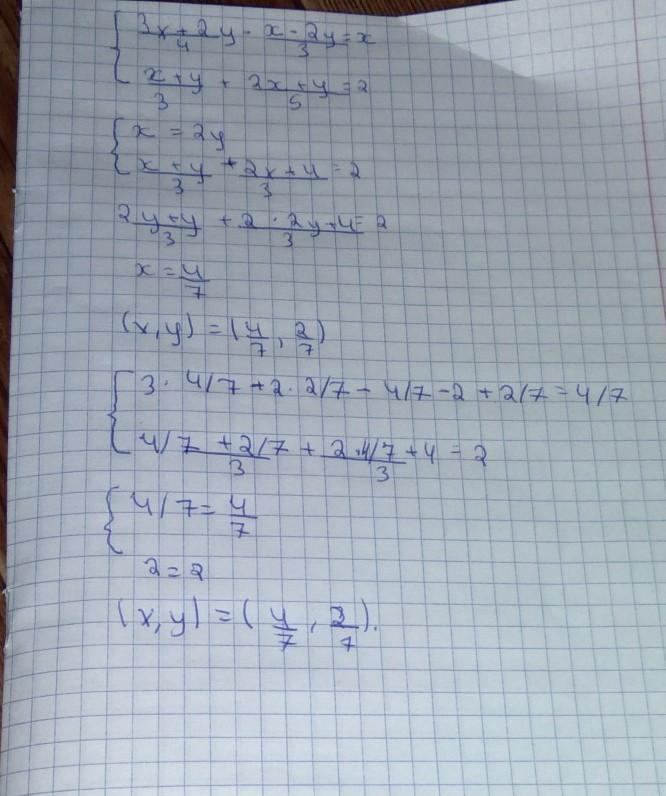 { (3x+2y)/4 - (x-2y)/3 = x
(x+y)/3 + (2x+y)/5 = 2
{ x = 2y
(x+y)/3 + (2x+4)/3 = 2
(2y+y)/3 + (2·2y+4)/3 = 2
x = 4/7
(x,y) = (4/7, 2/7)
{ 3· 4/7 + 2· 2/7 - 4/7 - 2 + 2/7 = 4/7
(4/7 + 2/7)/3 + (2·4/7)/3 + 4 = 2
{ 4/7 = 4/7
2 = 2
(x,y) = (4/7, 2/7).